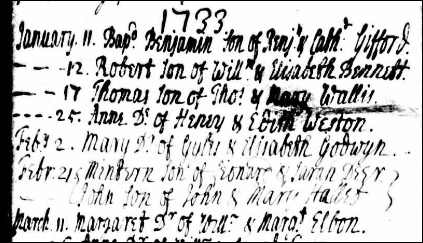 1733
January. 11. Bapd. Benjamin son of Benj: & Cath: Gifford.
- - - 12. Robert Son of Willm & Elisabeth Bennett.
- - - 17 Thomas Son of Thos: & Mary Wallis
- - - - 25. Anne Dr. of Henry & Edith Weston.
Feb: 2. Mary Dr. of & Elisabeth Godwyn.
Febr: 21 & Mintern Son of & Sarah
- John Son of John & Mary Hallet
March. 11. Margaret Dr of Willm & Margt Elson.